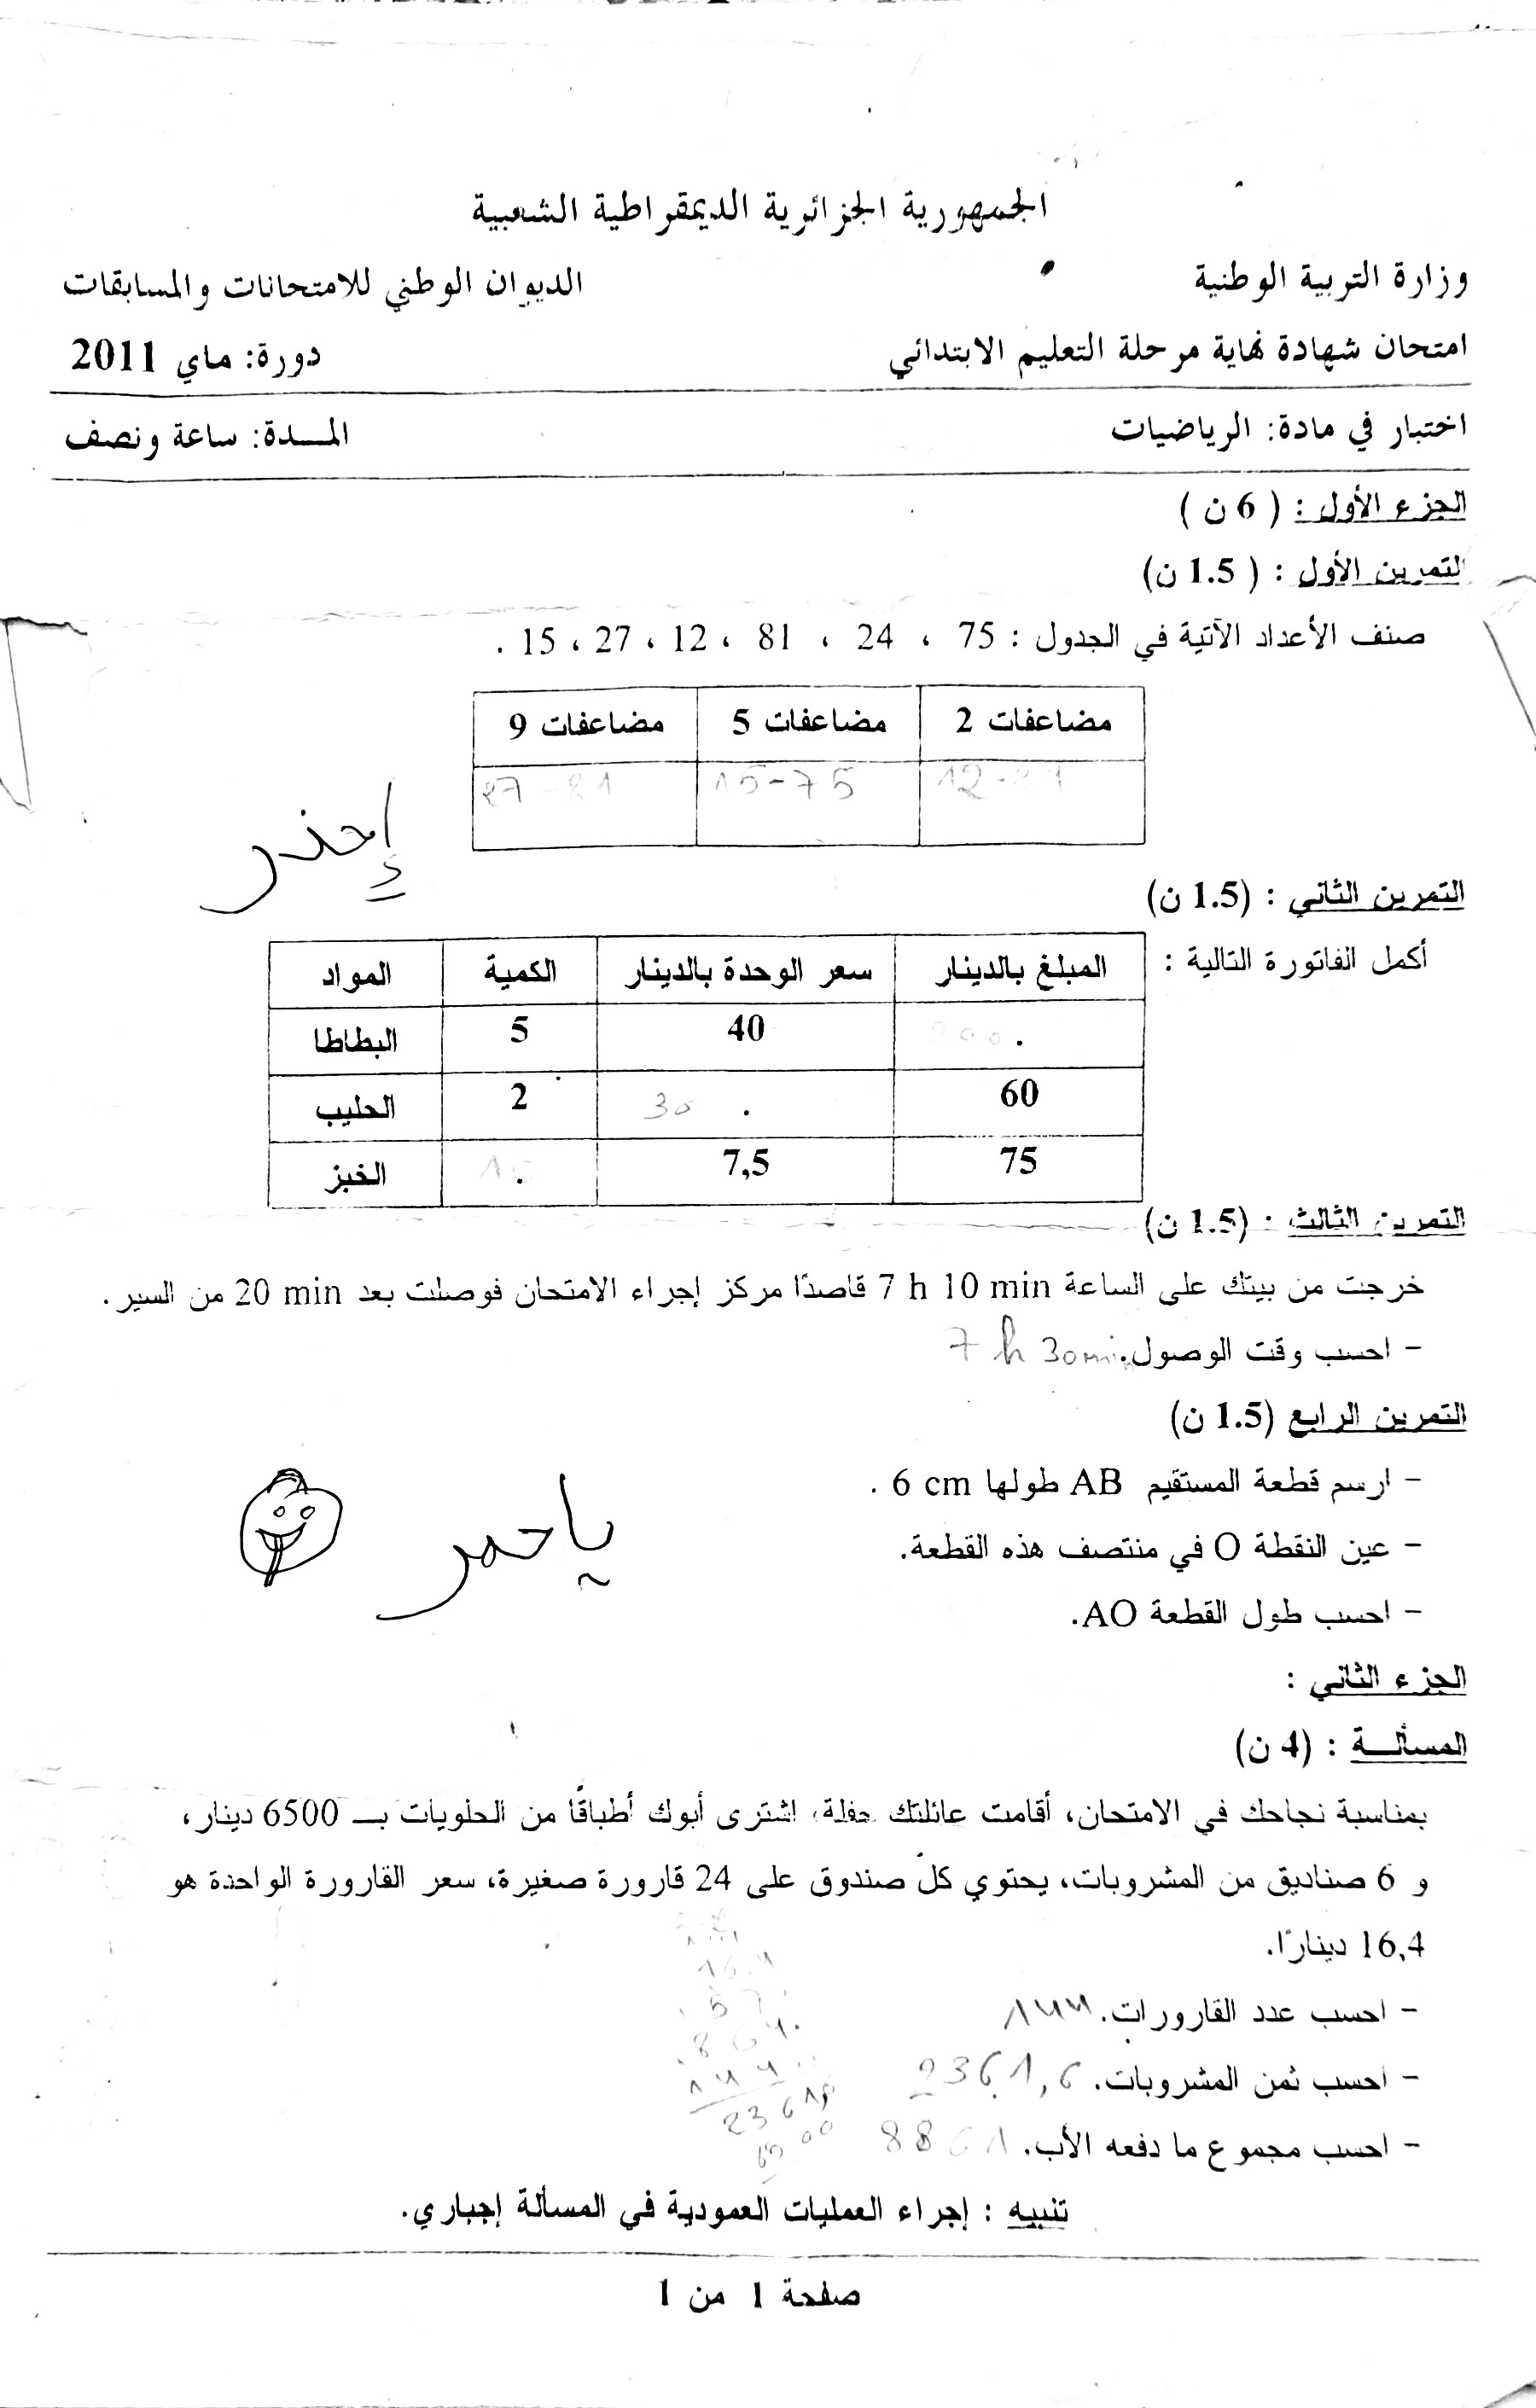 الجمهورية الجزائرية الديمقراطية الشعبية
وزارة التربية الوطنية الديوان الوطني للامتحانات والمسابقات
امتحان شهادة نهاية مرحلة التعليم الابتدائي دورة: ماي 2011
اختبار في مادة: الرياضيات المــدة: ساعة ونصف
الجزء الأول : ( 6 ن )
التمرين الأول : ( 1.5 ن)
صنف الأعداد الآتية في الجدول : 75 ، 24 ، 81 ، 12 ، 27 ، 15 .
مضاعفات 2 مضاعفات 5 مضاعفات 9
15-75 27-81
إحذر
التمرين الثاني : (1.5 ن)
أكمل الفاتورة التالية :
المواد الكمية سعر الوحدة بالدينار المبلغ بالدينار
البطاطا 5 40 .
الحليب 2 . 30 60
الخبز . 7,5 75
التمرين الثالث : (1.5 ن)
خرجت من بيتك على الساعة 7 h 10 min قاصدًا مركز إجراء الامتحان فوصلت بعد 20 min من السير.
- احسب وقت الوصول. 7 h 30 min
التمرين الرابع (1.5 ن)
- ارسم قطعة المستقيم AB طولها 6 cm .
- عين النقطة O في منتصف هذه القطعة.
ياحمر
- احسب طول القطعة AO.
الجزء الثاني :
المسألــة : (4 ن)
بمناسبة نجاحك في الامتحان، أقامت عائلتك حفلة، اشترى أبوك أطباقًا من الحلويات بـ 6500 دينار،
و 6 صناديق من المشروبات، يحتوي كلّ صندوق على 24 قارورة صغيرة، سعر القارورة الواحدة هو
16,4 دينارًا.
- احسب عدد القارورات. 144
- احسب ثمن المشروبات. 2361,6
- احسب مجموع ما دفعه الأب. 8861
تنبيه : إجراء العمليات العمودية في المسألة إجباري.
صفحة 1 من 1